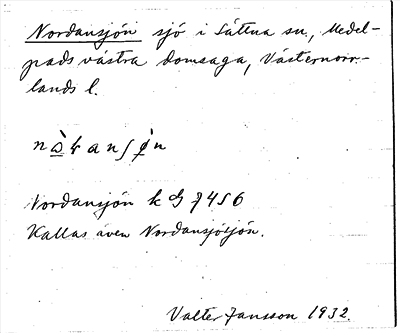 Nordansjön sjö i Sättna sn., Medel-
pads västra domsaga, Västernorr-
lands l.
Nordansjön k G 7456
Kallas även Nordansjösjön.
Valter Jansson 1932.